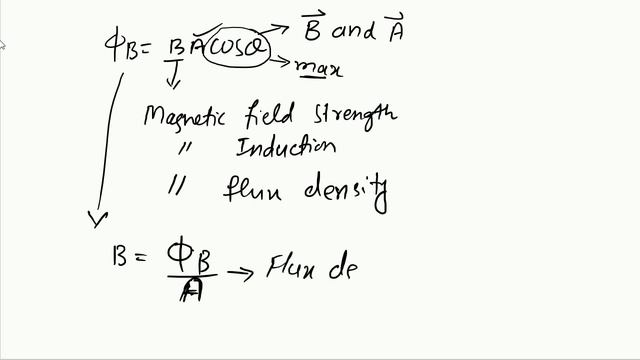 ϕB = BA cosθ → B⃗ and A⃗
→ max
Magnetic field strength
〃 Induction
〃 flux density
B = ϕB / A → Flux de